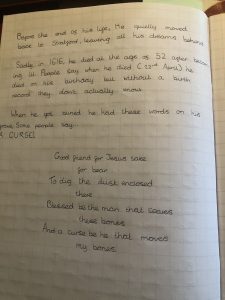 Before the end of his life, He quietly moved
back to Stratford, leaving all his dreams behind
Sadly, in 1616, he died at the age of 52 after becom
ing ill. People say when he died (23rd April) he
died on his birthday but without a birth
record they don't actually know.
When he got buried he had these words on his
grave. Some people say
A CURSE!
Good friend for Jesus sake
for bear
To dig the dust enclosed
there
Blessed be the man that leaves
these bones
And a curse be he that moves
my bones.